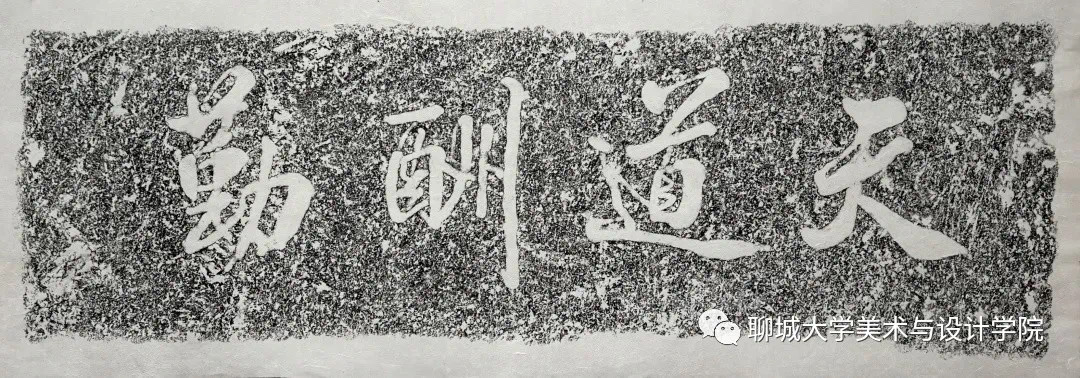 天道酬勤
聊城大学美术与设计学院